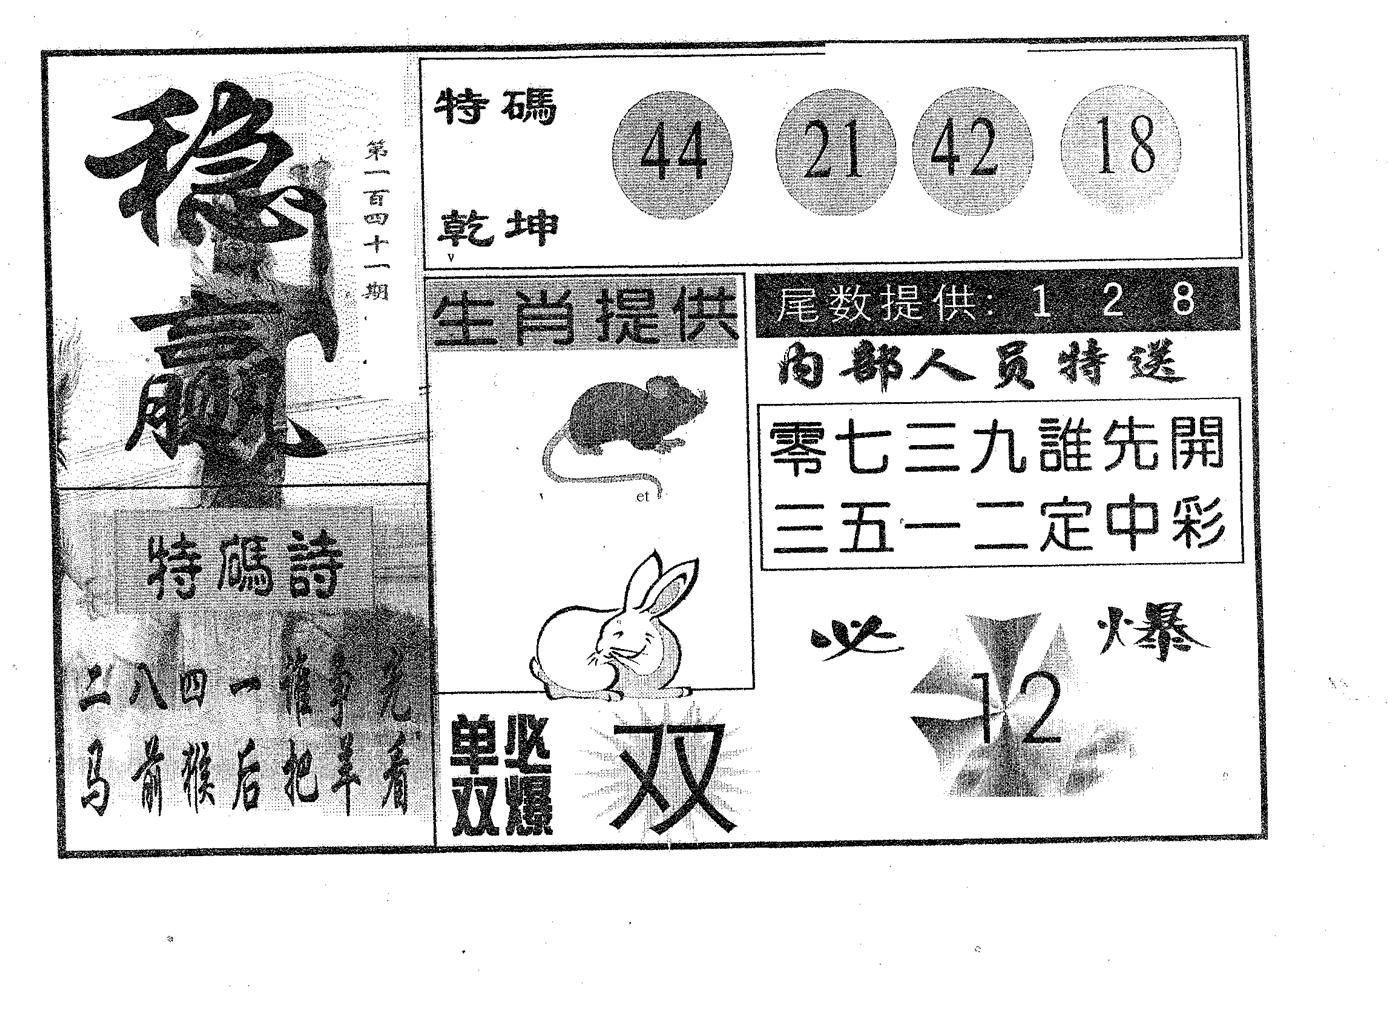 稳赢
第一百四十一期
特碼詩
二八四一誰爭先
马前猴后把羊看
特碼
乾坤
44 21 42 18
生肖提供
et
单双必爆
双
尾数提供: 1 2 8
内部人员特送
零七三九誰先開
三五一二定中彩
必爆
12